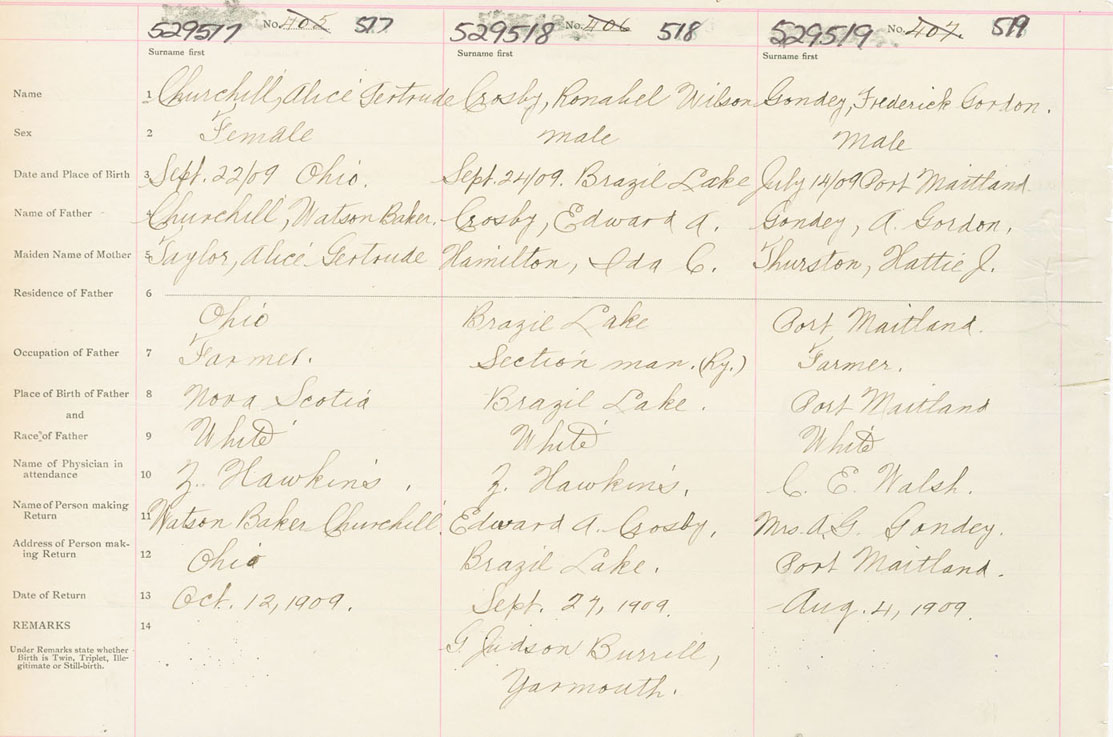 529517 No. 405 517 529518 No. 406 518 529519 No. 407. 519
Surname first Surname first Surname first
Name 1 Churchill, Alice Gertrude Crosby, Ronabel Wilson Gondey, Frederick Gordon.
Sex 2 Female Male Male
Date and Place of Birth 3 Sept. 22/09 Ohio. Sept. 24/09. Brazil Lake July 14/09 Port Maitland
Name of Father 4 Churchill, Watson Baker. Crosby, Edward A. Gondey, A. Gordon.
Maiden Name of Mother 5 Taylor, Alice Gertrude Hamilton, Ida C. Thurston, Hattie J.
Residence of Father 6
Ohio Brazil Lake Port Maitland.
Occupation of Father 7 Farmer. Section man. (Ry.) Farmer.
Place of Birth of Father 8 Nova Scotia Brazil Lake. Port Maitland
and
Race of Father 9 White White White
Name of Physician in
attendance 10 Z. Hawkins. Z. Hawkins. C. E. Walsh.
Name of Person making
Return 11 Watson Baker Churchill Edward A. Crosby. Mrs. A. G. Gondey.
Address of Person mak-
ing Return 12 Ohio Brazil Lake. Port Maitland.
Date of Return 13 Oct. 12, 1909. Sept. 27, 1909. Aug. 4, 1909.
REMARKS 14
Under Remarks state whether
Birth is Twin, Triplet, Ille-
gitimate or Still-birth.
G. Judson Burrell,
Yarmouth.